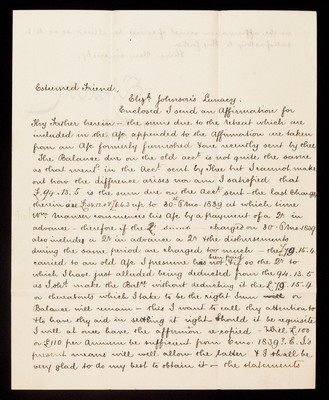 Esteemed Friend,
Eliz.h Johnson's Lunacy.
Enclosed I send an Affirmation for
thy Father herein – the sums due to the retreat which are
included in the a/c appended to the Affirmation are taken
from an a/c formerly furnished & one recently sent by thee
The Balance due on the old acct is not quite the same
as that ment.d in the Acct sent by thee but I cannot make
out how the difference arises nor am I satisfied that
£94.13.5 is the sum due on the Acct sent – the last charge
therein up to 30.6mo 1839 at which time
Wm Manser commences his a/c by a payment of a Qr in
advance – therefore if the £ charge on 30.6mo 1839
also includes a Qr in advance a Qr & the disbursements
during the same period are charged too much – the £79.15.4
carried to an old a/c I presume has not been paid to the Qr to
which I have just alluded being deducted from the 94.13.5
as I shd make the Balce without deducting it the £79.15.4
or thereabouts which I take to be the right sum or
Balance will remain – this I want to call thy attention to
& to have thy aid in settling it right. Should it be requisite
I will at once have the affirmn re-copied – Will £100
or £110 per Annum be sufficient from 6mo 1839? E.J's
present means will well allow the latter & I shall be
very glad to do my best to obtain it – the statements